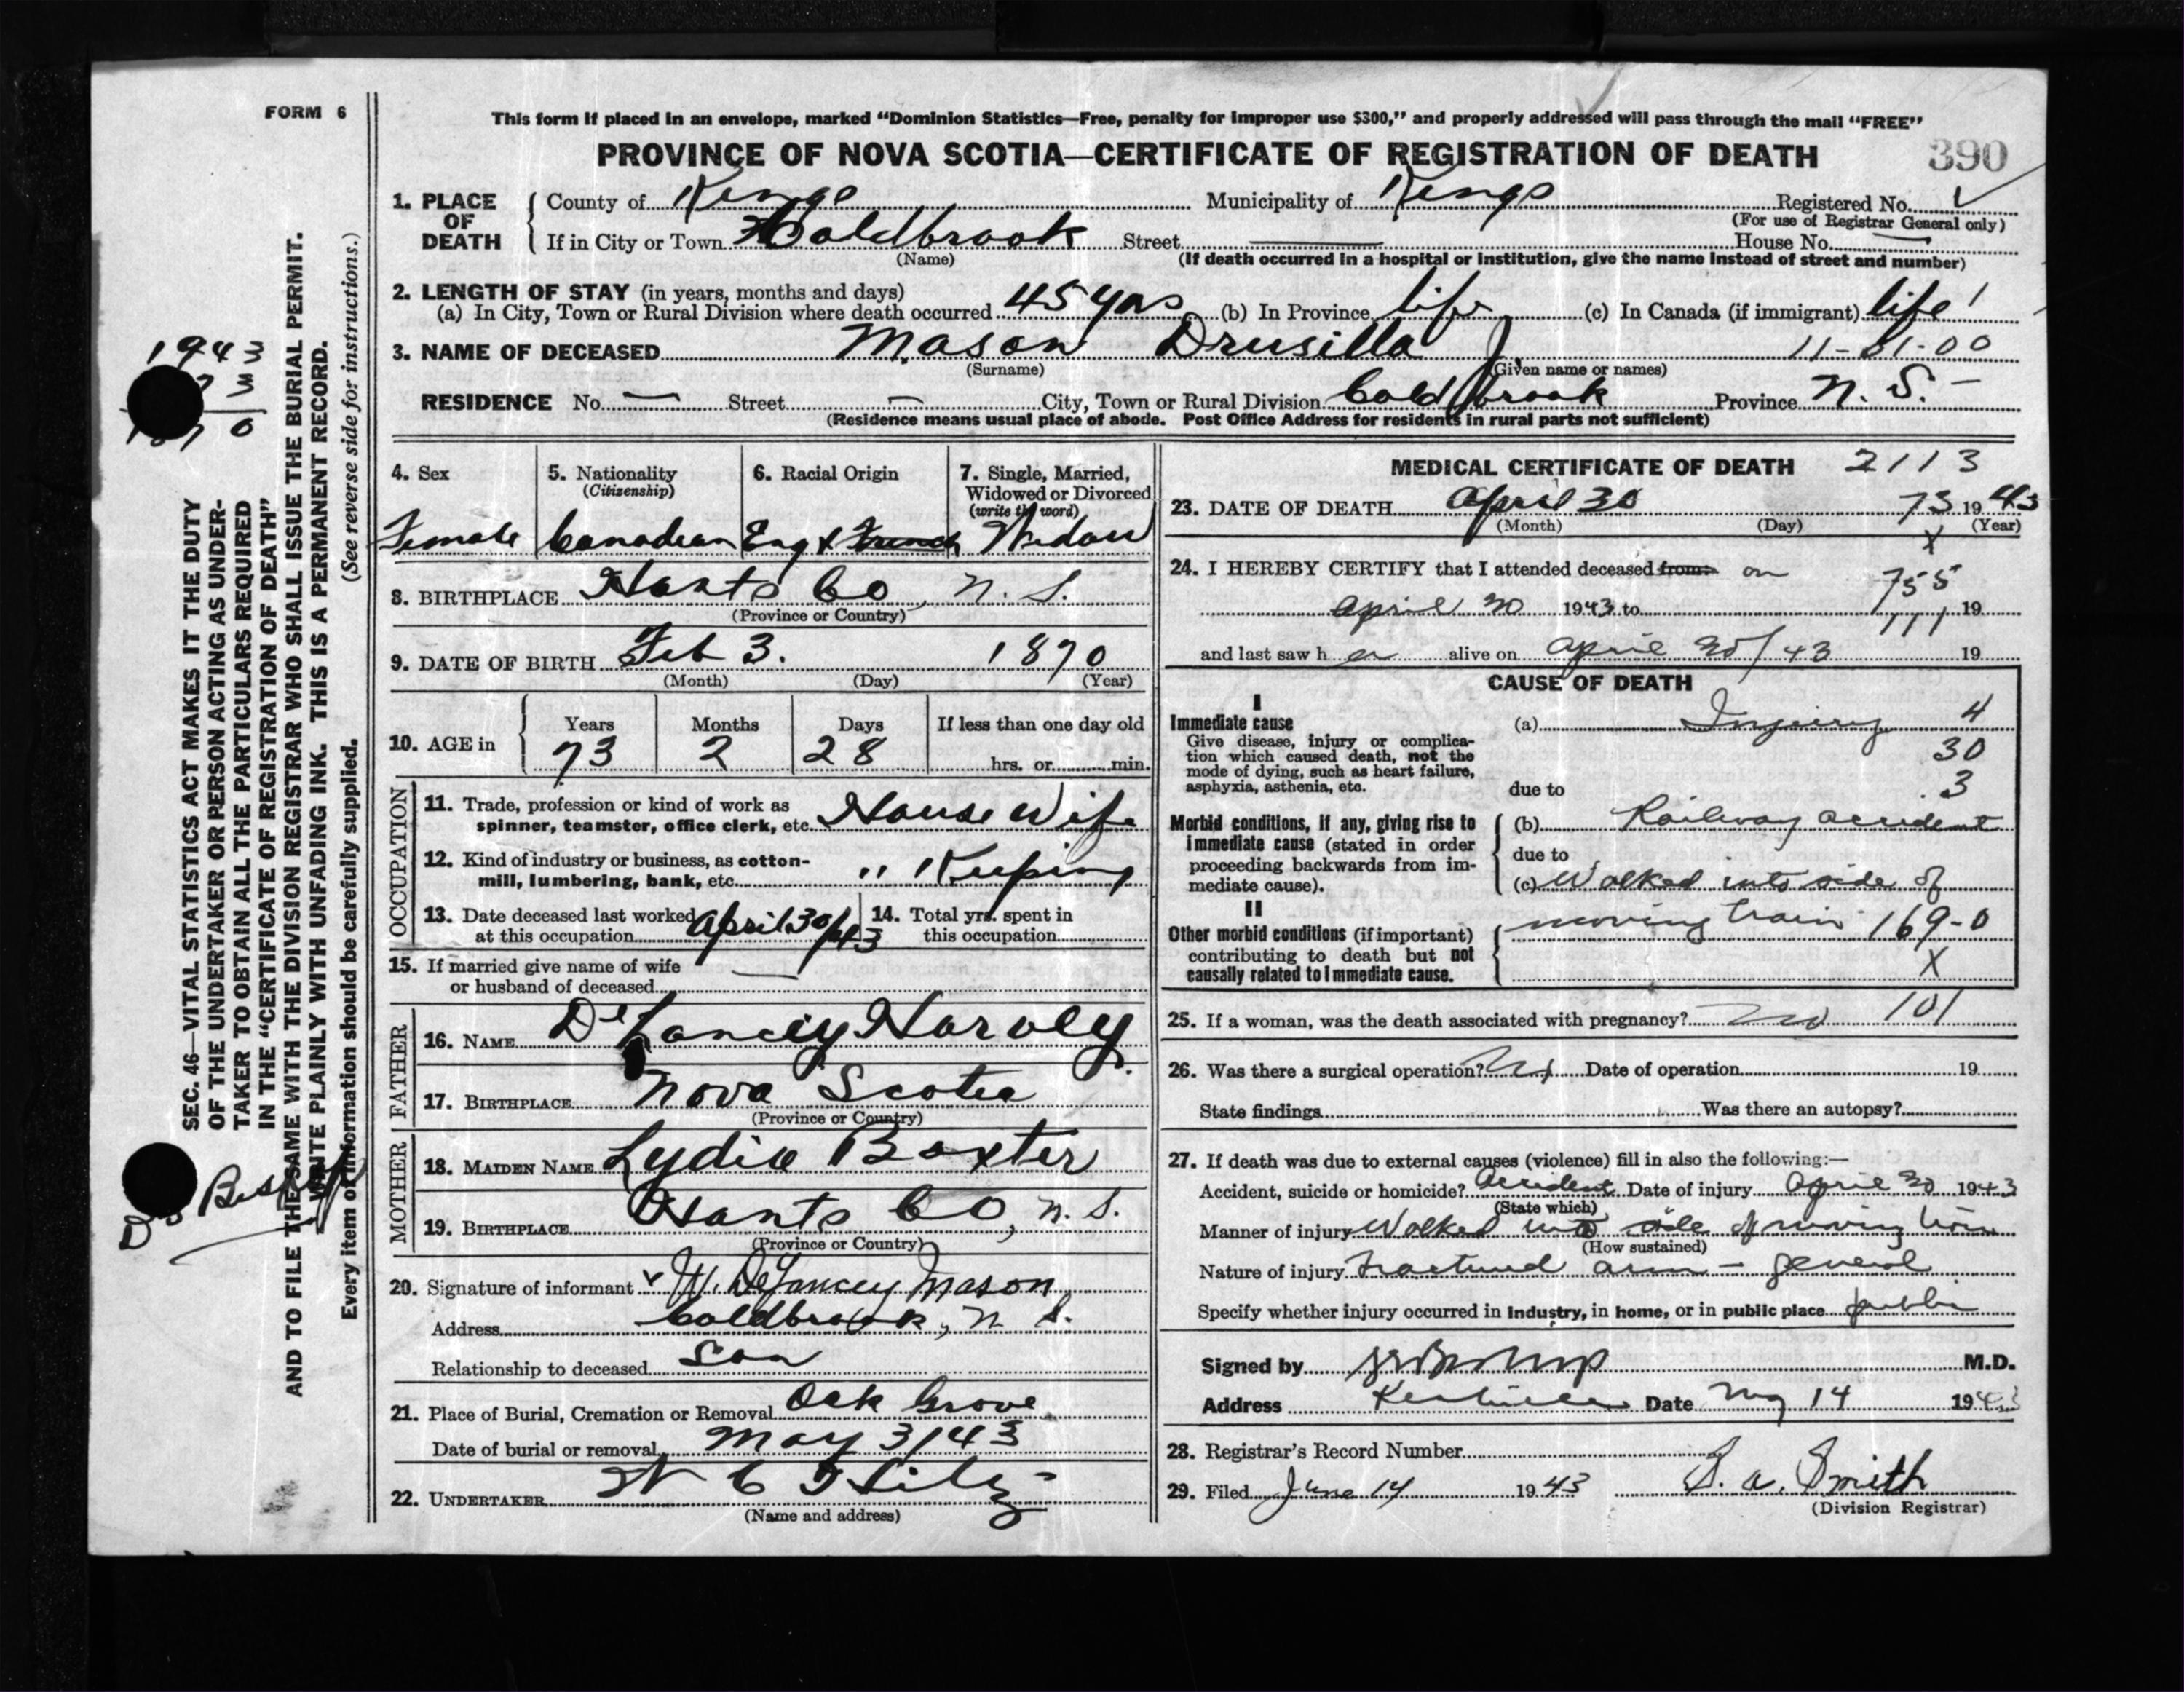 FORM 6
This form if placed in an envelope, marked “Dominion Statistics—Free, penalty for improper use $300,” and properly addressed will pass through the mail “FREE”
PROVINCE OF NOVA SCOTIA—CERTIFICATE OF REGISTRATION OF DEATH 390
1. PLACE OF DEATH
County of Kings Municipality of Kings Registered No.
(For use of Registrar General only)
If in City or Town Coldbrook Street — House No. —
(Name) (If death occurred in a hospital or institution, give the name instead of street and number)
2. LENGTH OF STAY (in years, months and days)
(a) In City, Town or Rural Division where death occurred 45 yrs (b) In Province life (c) In Canada (if immigrant) life
3. NAME OF DECEASED Mason Drusilla J. 11-01-00
(Surname) (Given name or names)
RESIDENCE No. — Street — City, Town or Rural Division Coldbrook Province N. S. —
(Residence means usual place of abode. Post Office Address for residents in rural parts not sufficient)
4. Sex
Female
5. Nationality
(Citizenship)
Canadian
6. Racial Origin
Eng & French
7. Single, Married,
Widowed or Divorced
(write the word)
Widow
8. BIRTHPLACE Hants Co, N. S.
(Province or Country)
9. DATE OF BIRTH Feb 3. 1870
(Month) (Day) (Year)
10. AGE in
Years Months Days If less than one day old
73 2 28 hrs. or min.
OCCUPATION
11. Trade, profession or kind of work as
spinner, teamster, office clerk, etc. House Wife
12. Kind of industry or business, as cotton-
mill, lumbering, bank, etc. " Keeping
13. Date deceased last worked
at this occupation April 30/43
14. Total yrs. spent in
this occupation
15. If married give name of wife
or husband of deceased —
FATHER
16. NAME DeLancey Harvey
17. BIRTHPLACE Nova Scotia
(Province or Country)
MOTHER
18. MAIDEN NAME Lydia Baxter
19. BIRTHPLACE Hants Co, N. S.
(Province or Country)
20. Signature of informant W. DeLancey Mason
Address Coldbrook, N. S.
Relationship to deceased Son
21. Place of Burial, Cremation or Removal Oak Grove
Date of burial or removal May 3/43
22. UNDERTAKER W C Hiltz
(Name and address)
MEDICAL CERTIFICATE OF DEATH 2113
23. DATE OF DEATH April 30 73 1943
(Month) (Day) (Year)
X
24. I HEREBY CERTIFY that I attended deceased from: on
755
April 30 1943 to 19
111
and last saw her alive on April 30/43 19
CAUSE OF DEATH
I
Immediate cause
Give disease, injury or complica-
tion which caused death, not the
mode of dying, such as heart failure,
asphyxia, asthenia, etc.
(a) Injury 4
30
3
due to
Morbid conditions, if any, giving rise to
immediate cause (stated in order
proceeding backwards from im-
mediate cause).
(b) Railway accident
due to
(c) Walked into side of
II
moving train 169-0
Other morbid conditions (if important)
contributing to death but not
causally related to immediate cause.
X
25. If a woman, was the death associated with pregnancy? no 101
26. Was there a surgical operation? Date of operation 19
State findings Was there an autopsy?
27. If death was due to external causes (violence) fill in also the following:—
Accident, suicide or homicide? Accident Date of injury April 30 1943
(State which)
Manner of injury Walked into side of moving train
(How sustained)
Nature of injury Fractured arm — general
Specify whether injury occurred in industry, in home, or in public place public
Signed by M.D.
Address Kentville Date May 14 1943
28. Registrar's Record Number
29. Filed June 14 1943 S. A. Smith
(Division Registrar)
SEC. 46—VITAL STATISTICS ACT MAKES IT THE DUTY
OF THE UNDERTAKER OR PERSON ACTING AS UNDER-
TAKER TO OBTAIN ALL THE PARTICULARS REQUIRED
IN THE “CERTIFICATE OF REGISTRATION OF DEATH”
AND TO FILE THE SAME WITH THE DIVISION REGISTRAR WHO SHALL ISSUE THE BURIAL PERMIT.
WRITE PLAINLY WITH UNFADING INK. THIS IS A PERMANENT RECORD.
Every item of information should be carefully supplied. (See reverse side for instructions.)
1943